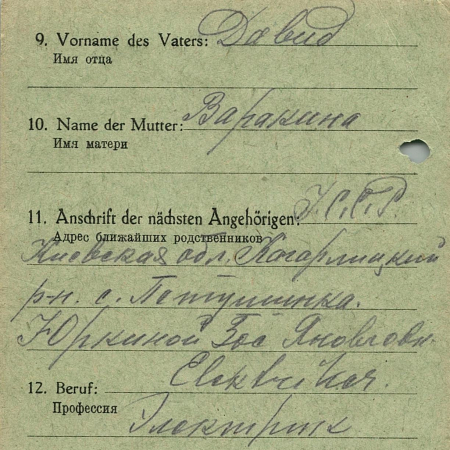 9. Vorname des Vaters: David
Имя отца
10. Name der Mutter: Варакина
Имя матери
11. Anschrift der nächsten Angehörigen: У.С.С.Р.
Адрес ближайших родственников
Киевская обл. Кагарлицкий
р-н. с.
Юркиной
12. Beruf: Elektriker.
Профессия
Электрик